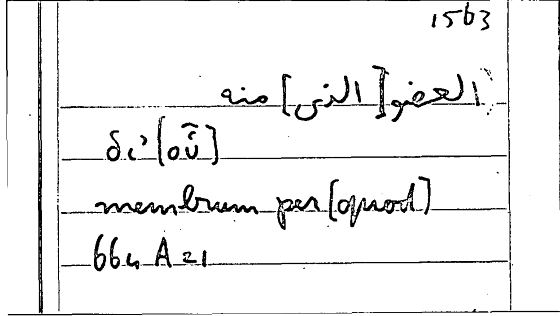 1563
العضو [الذى] منه
δι' [οὗ]
membrum per [quod]
664 A 21